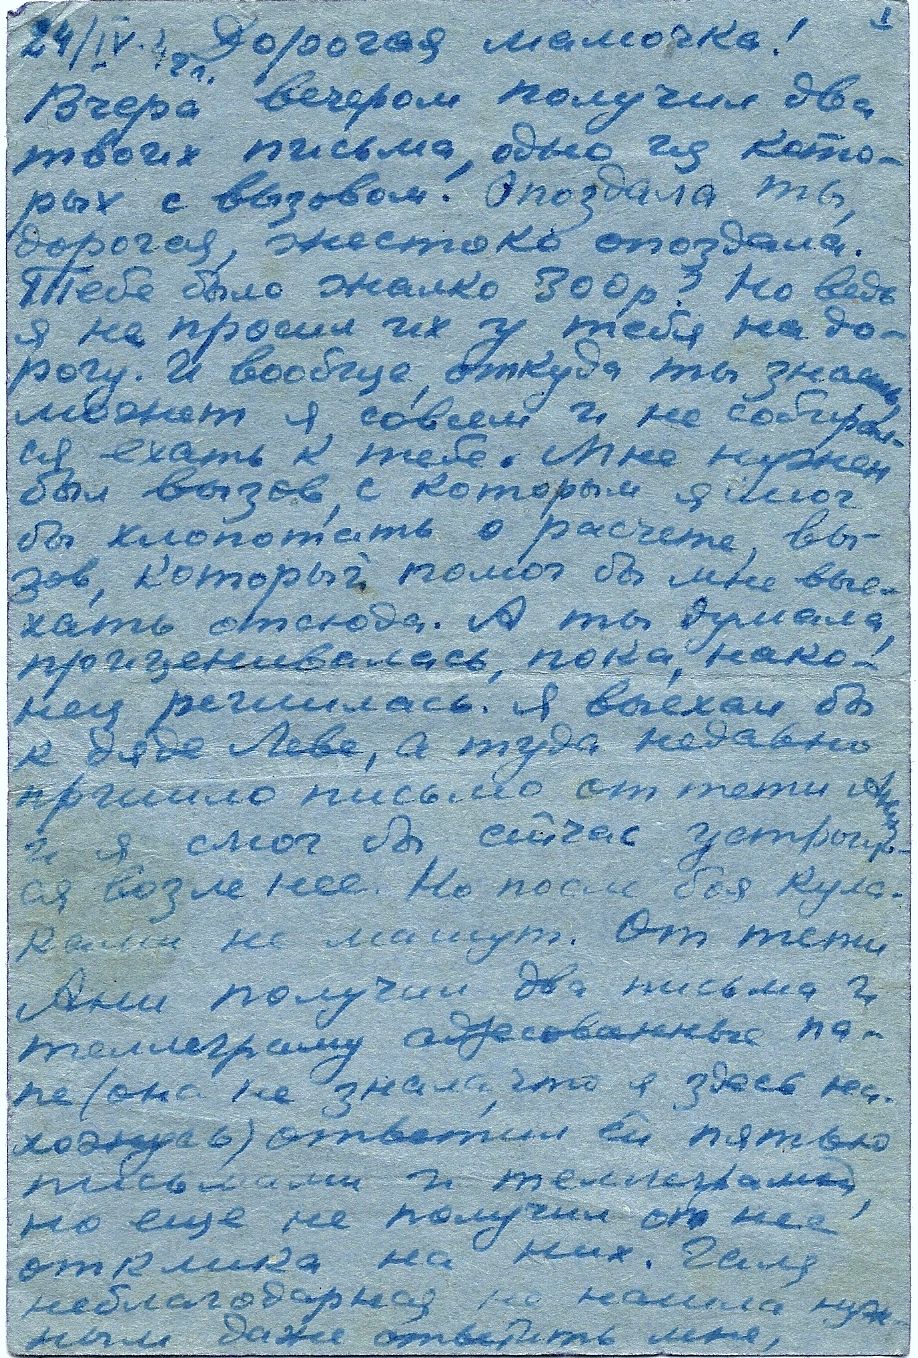 1
24/IV. Дорогая мамочка!
Вчера вечером получил два
твоих письма, одно из кото-
рых с вызовом! Опоздала ты,
дорогая, жестоко опоздала.
Тебе было жалко 300р.? Но ведь
я не просил их у тебя на до-
рогу. И вообще, откуда ты знаешь,
может я совсем и не собирал-
ся ехать к тебе. Мне нужен
был вызов, с которым я мог
бы хлопотать о расчете, вы-
зов, который помог бы мне вые-
хать отсюда. А ты думала,
приценивалась, пока, нако-
нец решилась. Я выехал бы
к дяде Леве, а туда недавно
пришло письмо от тети Ани
и я смог бы сейчас
ся возле нее. Но после боя кула-
ками не машут. От тети
Ани получил два письма и
теллеграму адресованные па-
пе (она не знала, что я здесь на-
хожусь) ответил ей пятью
письмами и теллеграмой,
но еще не получил от нее
отклика на них. Галя
неблагодарная не нашла нуж-
ным даже ответить мне,